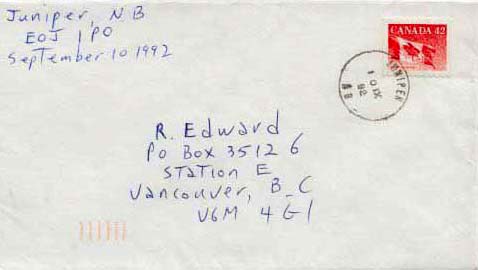 Juniper, N B
EOJ 1PO
September 10 1992
CANADA 42
JUNIPER
10 IX
92
NB
R. Edward
Po Box 35126
Station E
Vancouver, B_C
V6M 4G1